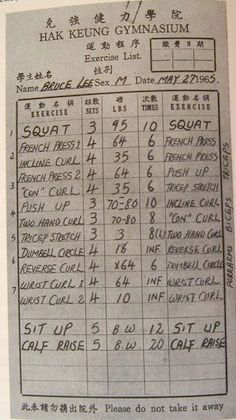 克強健力學院
HAK KEUNG GYMNASIUM
運動程序
Exercise List.
繳費日期
學生姓名 性別
Name BRUCE LEE Sex M Date MAY 27 1965.
運動名稱 EXERCISE 組數 SETS 磅 LBS 次數 TIMES 運動名稱 EXERCISE
1 SQUAT 3 95 10 SQUAT
2 FRENCH PRESS 1 4 64 6 FRENCH PRESS
3 INCLINE CURL 4 35 6 FRENCH PRESS
4 FRENCH PRESS 2 4 64 6 PUSH UP
5 "CON" CURL 4 35 6 TRICEP STRETCH
6 PUSH UP 3 70-80 10 INCLINE CURL
7 TWO HAND CURL 3 70-80 8 "CON" CURL
8 TRICEP STRETCH 3 3 8(6) TWO HAND CURL
9 DUMBELL CIRCLE 4 18 INF. REVERSE CURL
REVERSE CURL 4 X64 6 DUMBELL CIRCLE
WRIST CURL 1 4 64 INF WRIST CURL
WRIST CURL 2 4 10 INF WRIST CURL
SIT UP 5 B.W 12 SIT UP
CALF RAISE 5 B.W 20 CALF RAISE
TRICEPS
BICEPS
FOREARMS
此表請勿携出院外 Please do not take it away